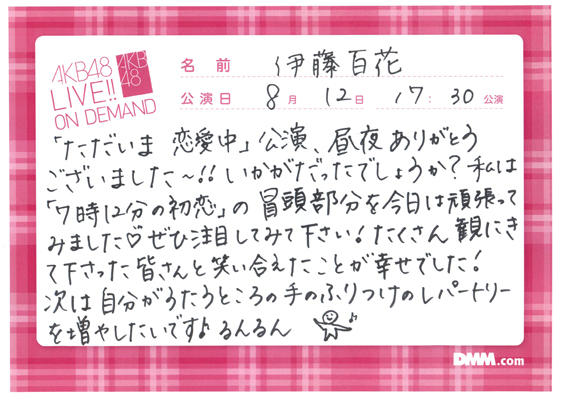 AKB48
LIVE!!
ON DEMAND
AKB
48
名前 伊藤百花
公演日 8月 12日 17:30公演
「ただいま 恋愛中」公演、昼夜ありがとう
ございました〜!! いかがだったでしょうか? 私は
「7時12分の初恋」の冒頭部分を今日は頑張って
みました♡ ぜひ注目してみて下さい! たくさん観にき
て下さった皆さんと笑い合えたことが幸せでした!
次は自分がうたうところの手のふりつけのレパートリー
を増やしたいです♪ るんるん
DMM.com